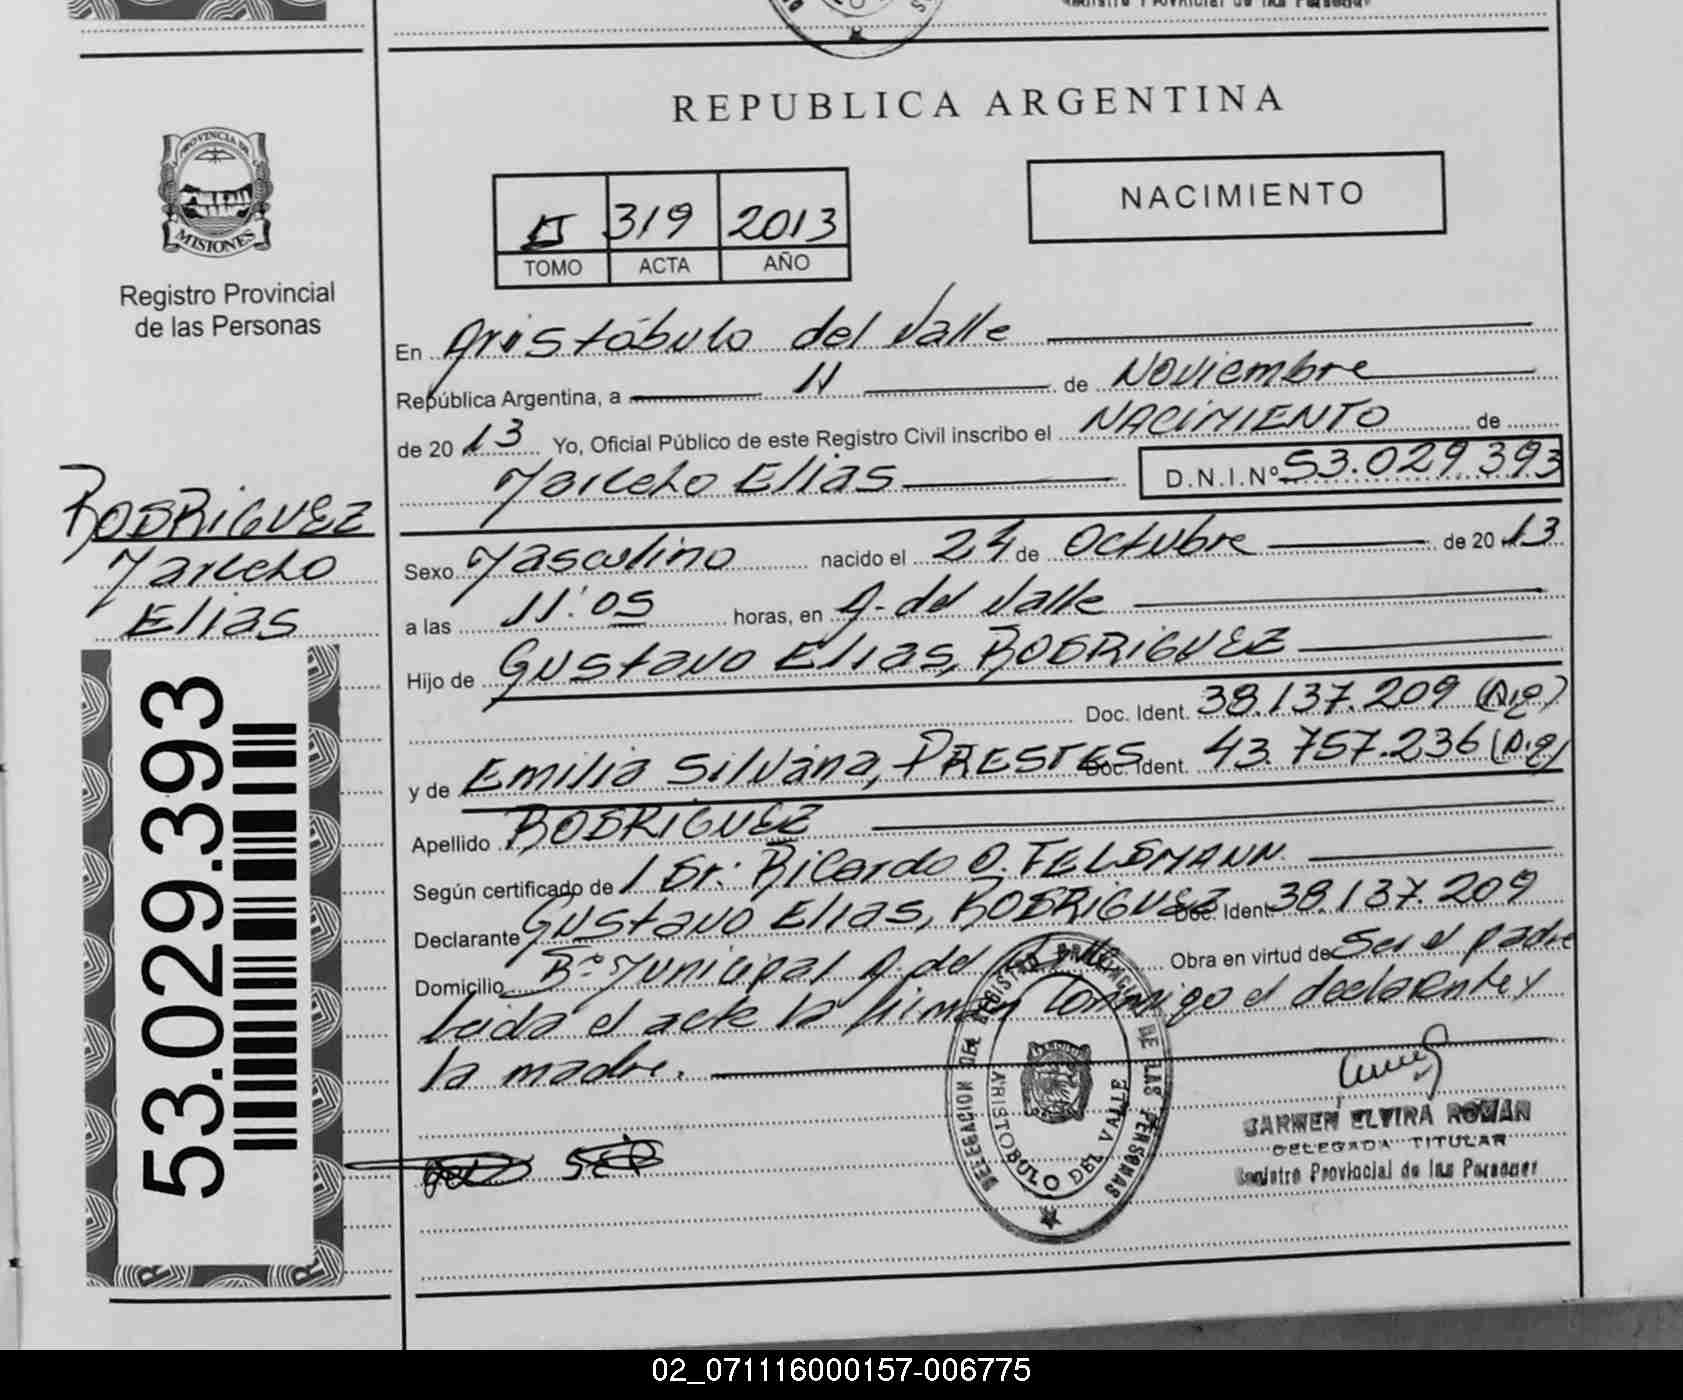 REPUBLICA ARGENTINA
NACIMIENTO
PROVINCIA DE
MISIONES
Registro Provincial
de las Personas
319 2013
TOMO ACTA AÑO
En Aristóbulo del Valle
República Argentina, a 11 de Noviembre
de 20 13 Yo, Oficial Público de este Registro Civil inscribo el NACIMIENTO de
Marcelo Elias D.N.I.Nº 53.029.393
RODRIGUEZ
Marcelo
Elias
53.029.393
Sexo Masculino nacido el 24 de Octubre de 20 13
a las 11:05 horas, en A. del Valle
Hijo de Gustavo Elias, RODRIGUEZ
Doc. Ident. 38.137.209 (Arg)
y de Emilia Silvana, PRESTES Doc. Ident. 43.757.236 (Arg)
Apellido RODRIGUEZ
Según certificado de / Dr: Ricardo O. FELDMANN
Declarante Gustavo Elias, RODRIGUEZ Doc. Ident. 38.137.209
Domicilio Bº Municipal A. del Valle Obra en virtud de Ser el padre
Leida el acta la firman conmigo el declarante y
la madre.
DELEGACION DEL REGISTRO PROVINCIAL DE LAS PERSONAS
ARISTOBULO DEL VALLE
CARMEN ELVIRA ROMAN
DELEGADA TITULAR
Registro Provincial de las Personas
02_071116000157-006775